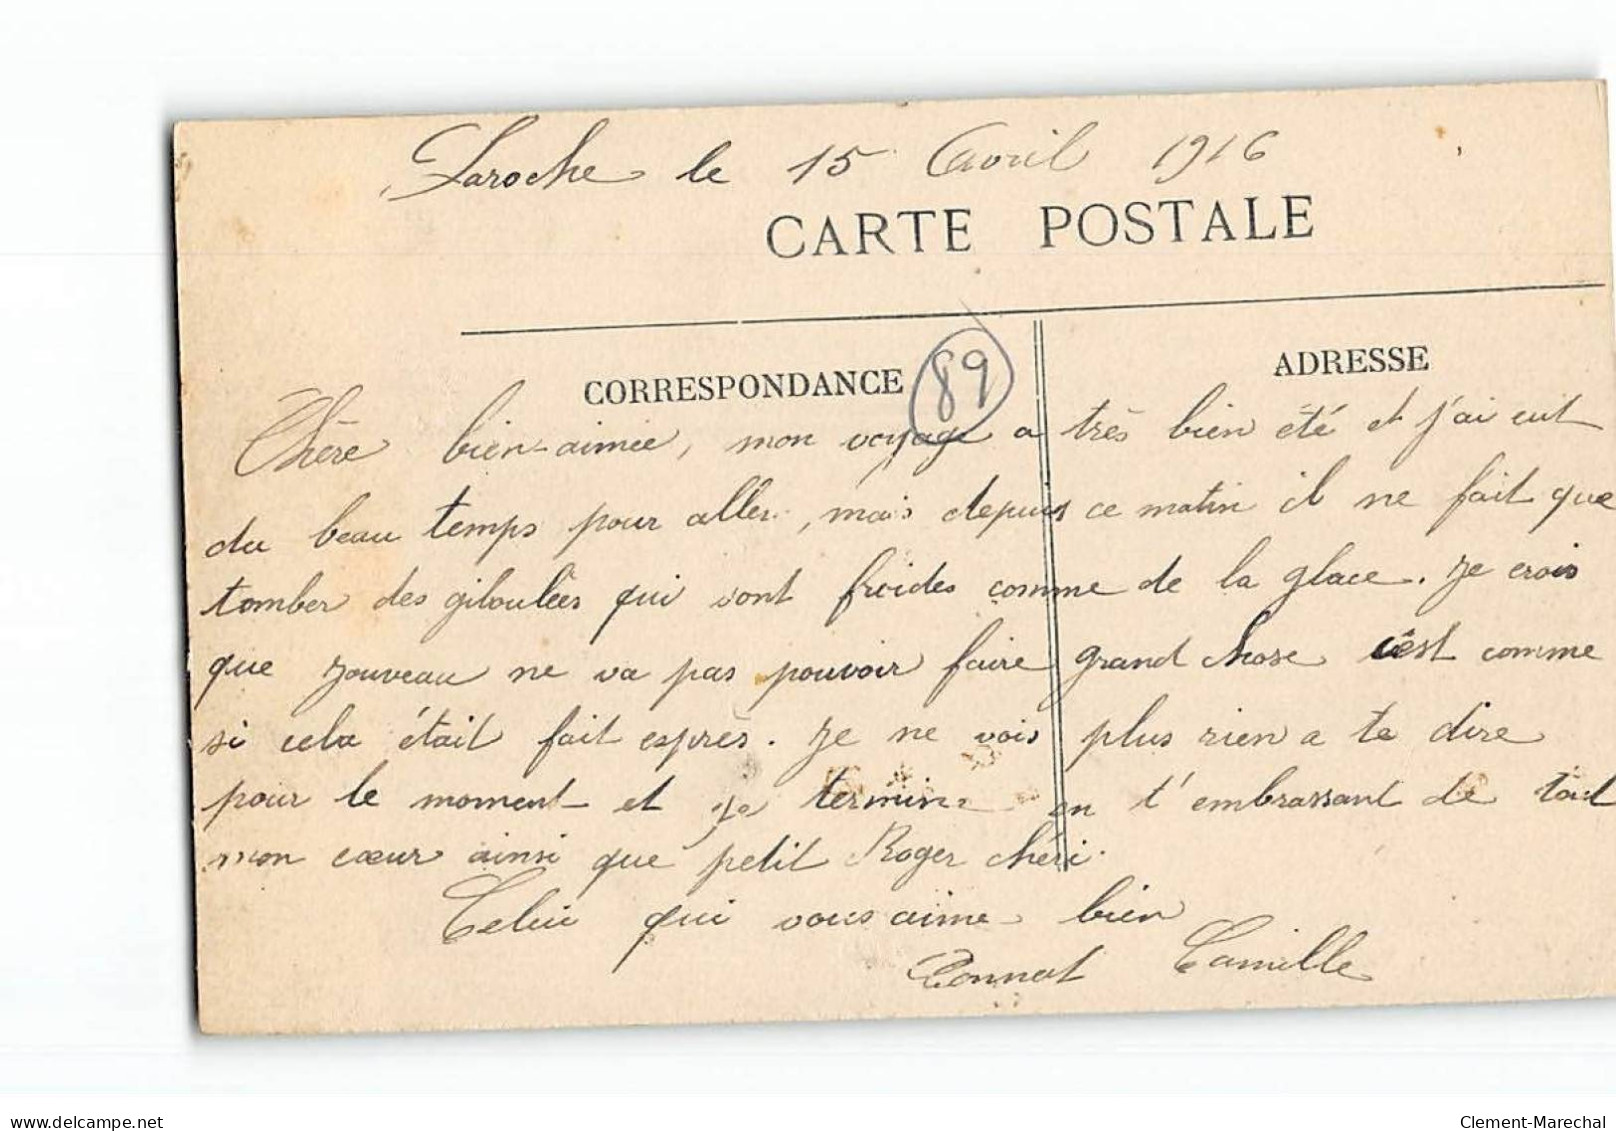 Laroche le 15 Avril 1916
CARTE POSTALE
CORRESPONDANCE
89
ADRESSE
Chère bien-aimée, mon voyage a très bien été et j'ai eut
du beau temps pour aller, mais depuis ce matin il ne fait que
tomber des giboulées qui sont froides comme de la glace. Je crois
que Jouveau ne va pas pouvoir faire grand chose c'est comme
si cela était fait esprès. Je ne vois plus rien a te dire
pour le moment et je termine en t'embrassant de tout
mon cœur ainsi que petit Roger chéri.
Celui qui vous aime bien
Camille
delcampe.net
Clement-Marechal